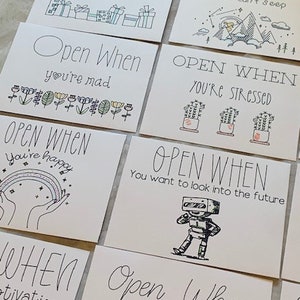 can't sleep
Open When
you're mad
OPEN WHEN
YOU'RE STRESSED
OPEN WHEN
You're happy
OPEN WHEN
You want to look into the future
WHEN
Open Wh